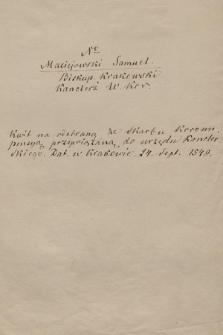 No
Maciejowski Samuel.
Biskup Krakowski
Kanclerz W. Kor.
Kwit na odebraną ze Skarbu Koronn.
pensyą przywiązaną do urzędu Kancler
skiego. Dat. w Krakowie 24. Sept. 1549.